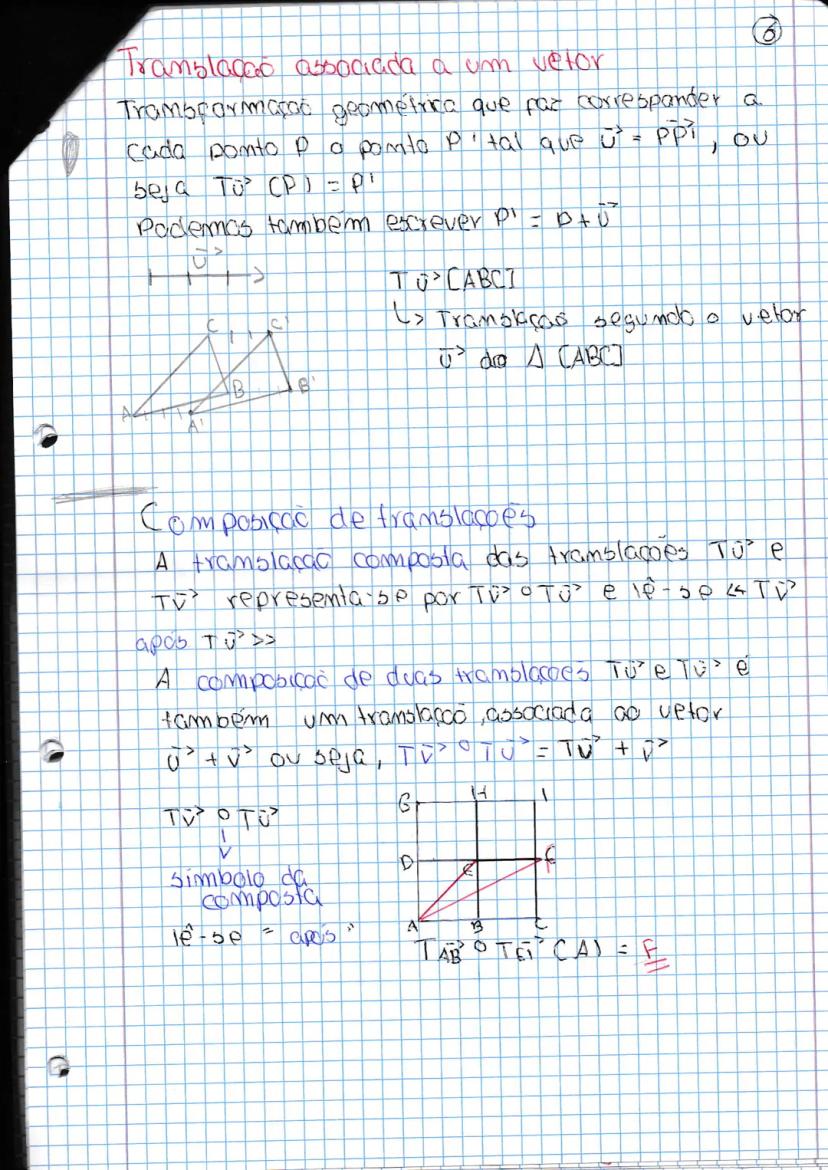 6
Translação associada a um vetor
Transformação geométrica que faz corresponder a
cada ponto P o ponto P' tal que u⃗ = PP'⃗, ou
seja Tu⃗ (P) = P'
Podemos também escrever P' = P + u⃗
u⃗
Tu⃗ [ABC]
↳ Translação segundo o vetor
u⃗ do Δ [ABC]
C C'
B B'
A A'
Composição de translações
A translação composta das translações Tu⃗ e
Tv⃗ representa-se por Tv⃗ o Tu⃗ e lê-se << Tv⃗
após Tu⃗ >>
A composição de duas translações Tu⃗ e Tv⃗ é
também um translação, associada ao vetor
u⃗ + v⃗ ou seja, Tv⃗ o Tu⃗ = Tu⃗ + v⃗
Tv⃗ o Tu⃗
símbolo da
composta
lê-se "após"
G H I
D E F
A B C
T AB⃗ o T EI⃗ (A) = F